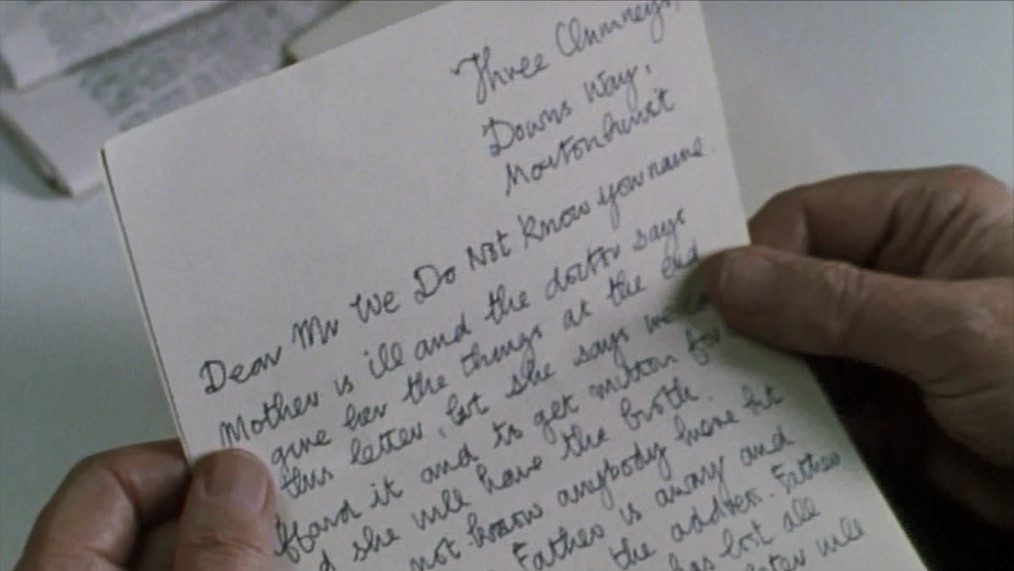 Three Chimneys,
Downs Way,
Mortonhurst
Dear Mr We Do Not Know you name.
Mother is ill and the doctor says
give her the things at the end
this letter, but she says we
fford it and to get mutton for
d she will have the broth.
not know anybody here bt
Father is away and
the address. Father
has lost all
later will